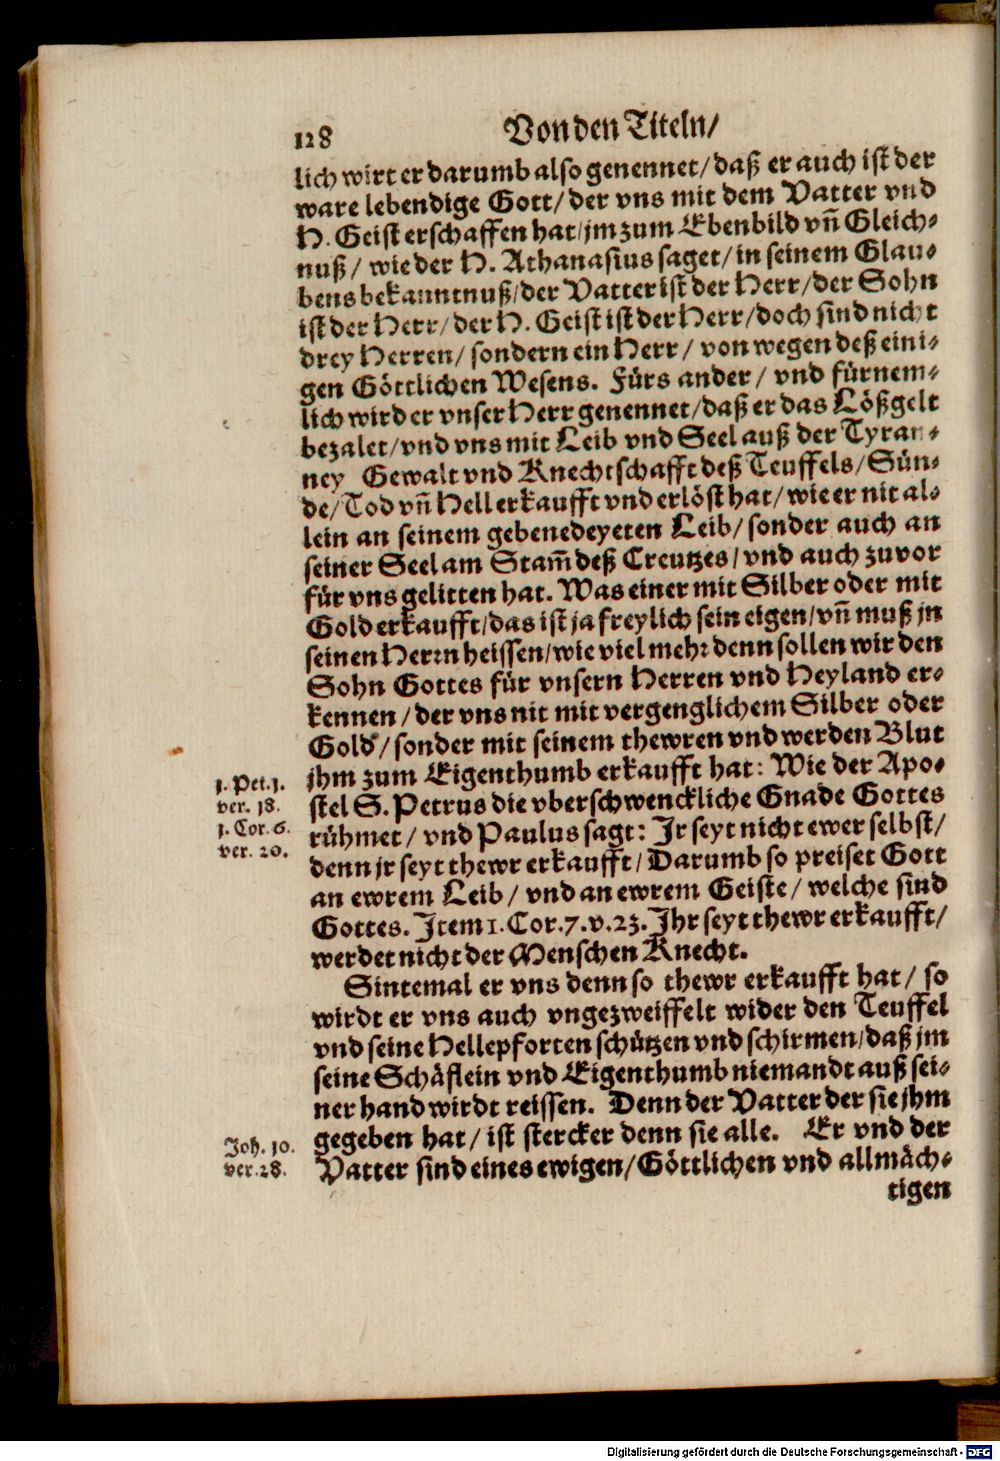 128 Von den Titeln/
lich wirt er darumb also genennet/ daß er auch ist der
ware lebendige Gott/ der vns mit dem Vatter vnd
H. Geist erschaffen hat/ jm zum Ebenbild vñ Gleich-
nuß/ wie der H. Athanasius saget/ in seinem Glau-
bens bekanntnuß/ der Vatter ist der Herr/ der Sohn
ist der Herr/ der H. Geist ist der Herr/ doch sind nicht
drey Herren/ sondern ein Herr/ von wegen deß eini-
gen Göttlichen Wesens. Fürs ander/ vnd fürnem-
lich wird er vnser Herr genennet/ daß er das Lößgelt
bezalet/ vnd vns mit Leib vnd Seel auß der Tyran-
ney Gewalt vnd Knechtschafft deß Teuffels/ Sün-
de/ Tod vñ Hell erkaufft vnd erlöst hat/ wie er nit al-
lein an seinem gebenedeyeten Leib/ sonder auch an
seiner Seel am Stam̃ deß Creutzes/ vnd auch zuvor
für vns gelitten hat. Was einer mit Silber oder mit
Gold erkaufft/ das ist ja freylich sein eigen/ vñ muß jn
seinen Herrn heissen/ wie viel mehr denn sollen wir den
Sohn Gottes für vnsern Herren vnd Heyland er-
kennen/ der vns nit mit vergenglichem Silber oder
Gold/ sonder mit seinem thewren vnd werden Blut
jhm zum Eigenthumb erkaufft hat: Wie der Apo-
stel S. Petrus die vberschwenckliche Gnade Gottes
rühmet/ vnd Paulus sagt: Jr seyt nicht ewer selbst/
denn jr seyt thewr erkaufft/ Darumb so preiset Gott
an ewrem Leib/ vnd an ewrem Geiste/ welche sind
Gottes. Jtem 1. Cor. 7. v. 23. Jhr seyt thewr erkaufft/
werdet nicht der Menschen Knecht.
Sintemal er vns denn so thewr erkaufft hat/ so
wirdt er vns auch vngezweiffelt wider den Teuffel
vnd seine Hellepforten schützen vnd schirmen/ daß jm
seine Schäflein vnd Eigenthumb niemandt auß sei-
ner hand wirdt reissen. Denn der Vatter der sie jhm
gegeben hat/ ist stercker denn sie alle. Er vnd der
Vatter sind eines ewigen/ Göttlichen vnd allmäch-
tigen
1. Pet. 1.
ver. 18.
1. Cor. 6.
ver. 20.
Joh. 10.
ver. 28.
Digitalisierung gefördert durch die Deutsche Forschungsgemeinschaft - DFG